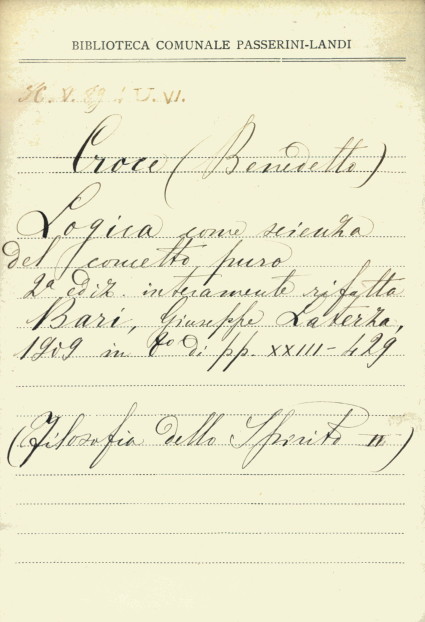 BIBLIOTECA COMUNALE PASSERINI-LANDI
Croce (Benedetto)
Logica come scienza
del concetto puro
2ª ediz. interamente rifatta
Bari, Giuseppe Laterza,
1909 in 8º di pp. XXIII-429
(Filosofia dello Spirito II)